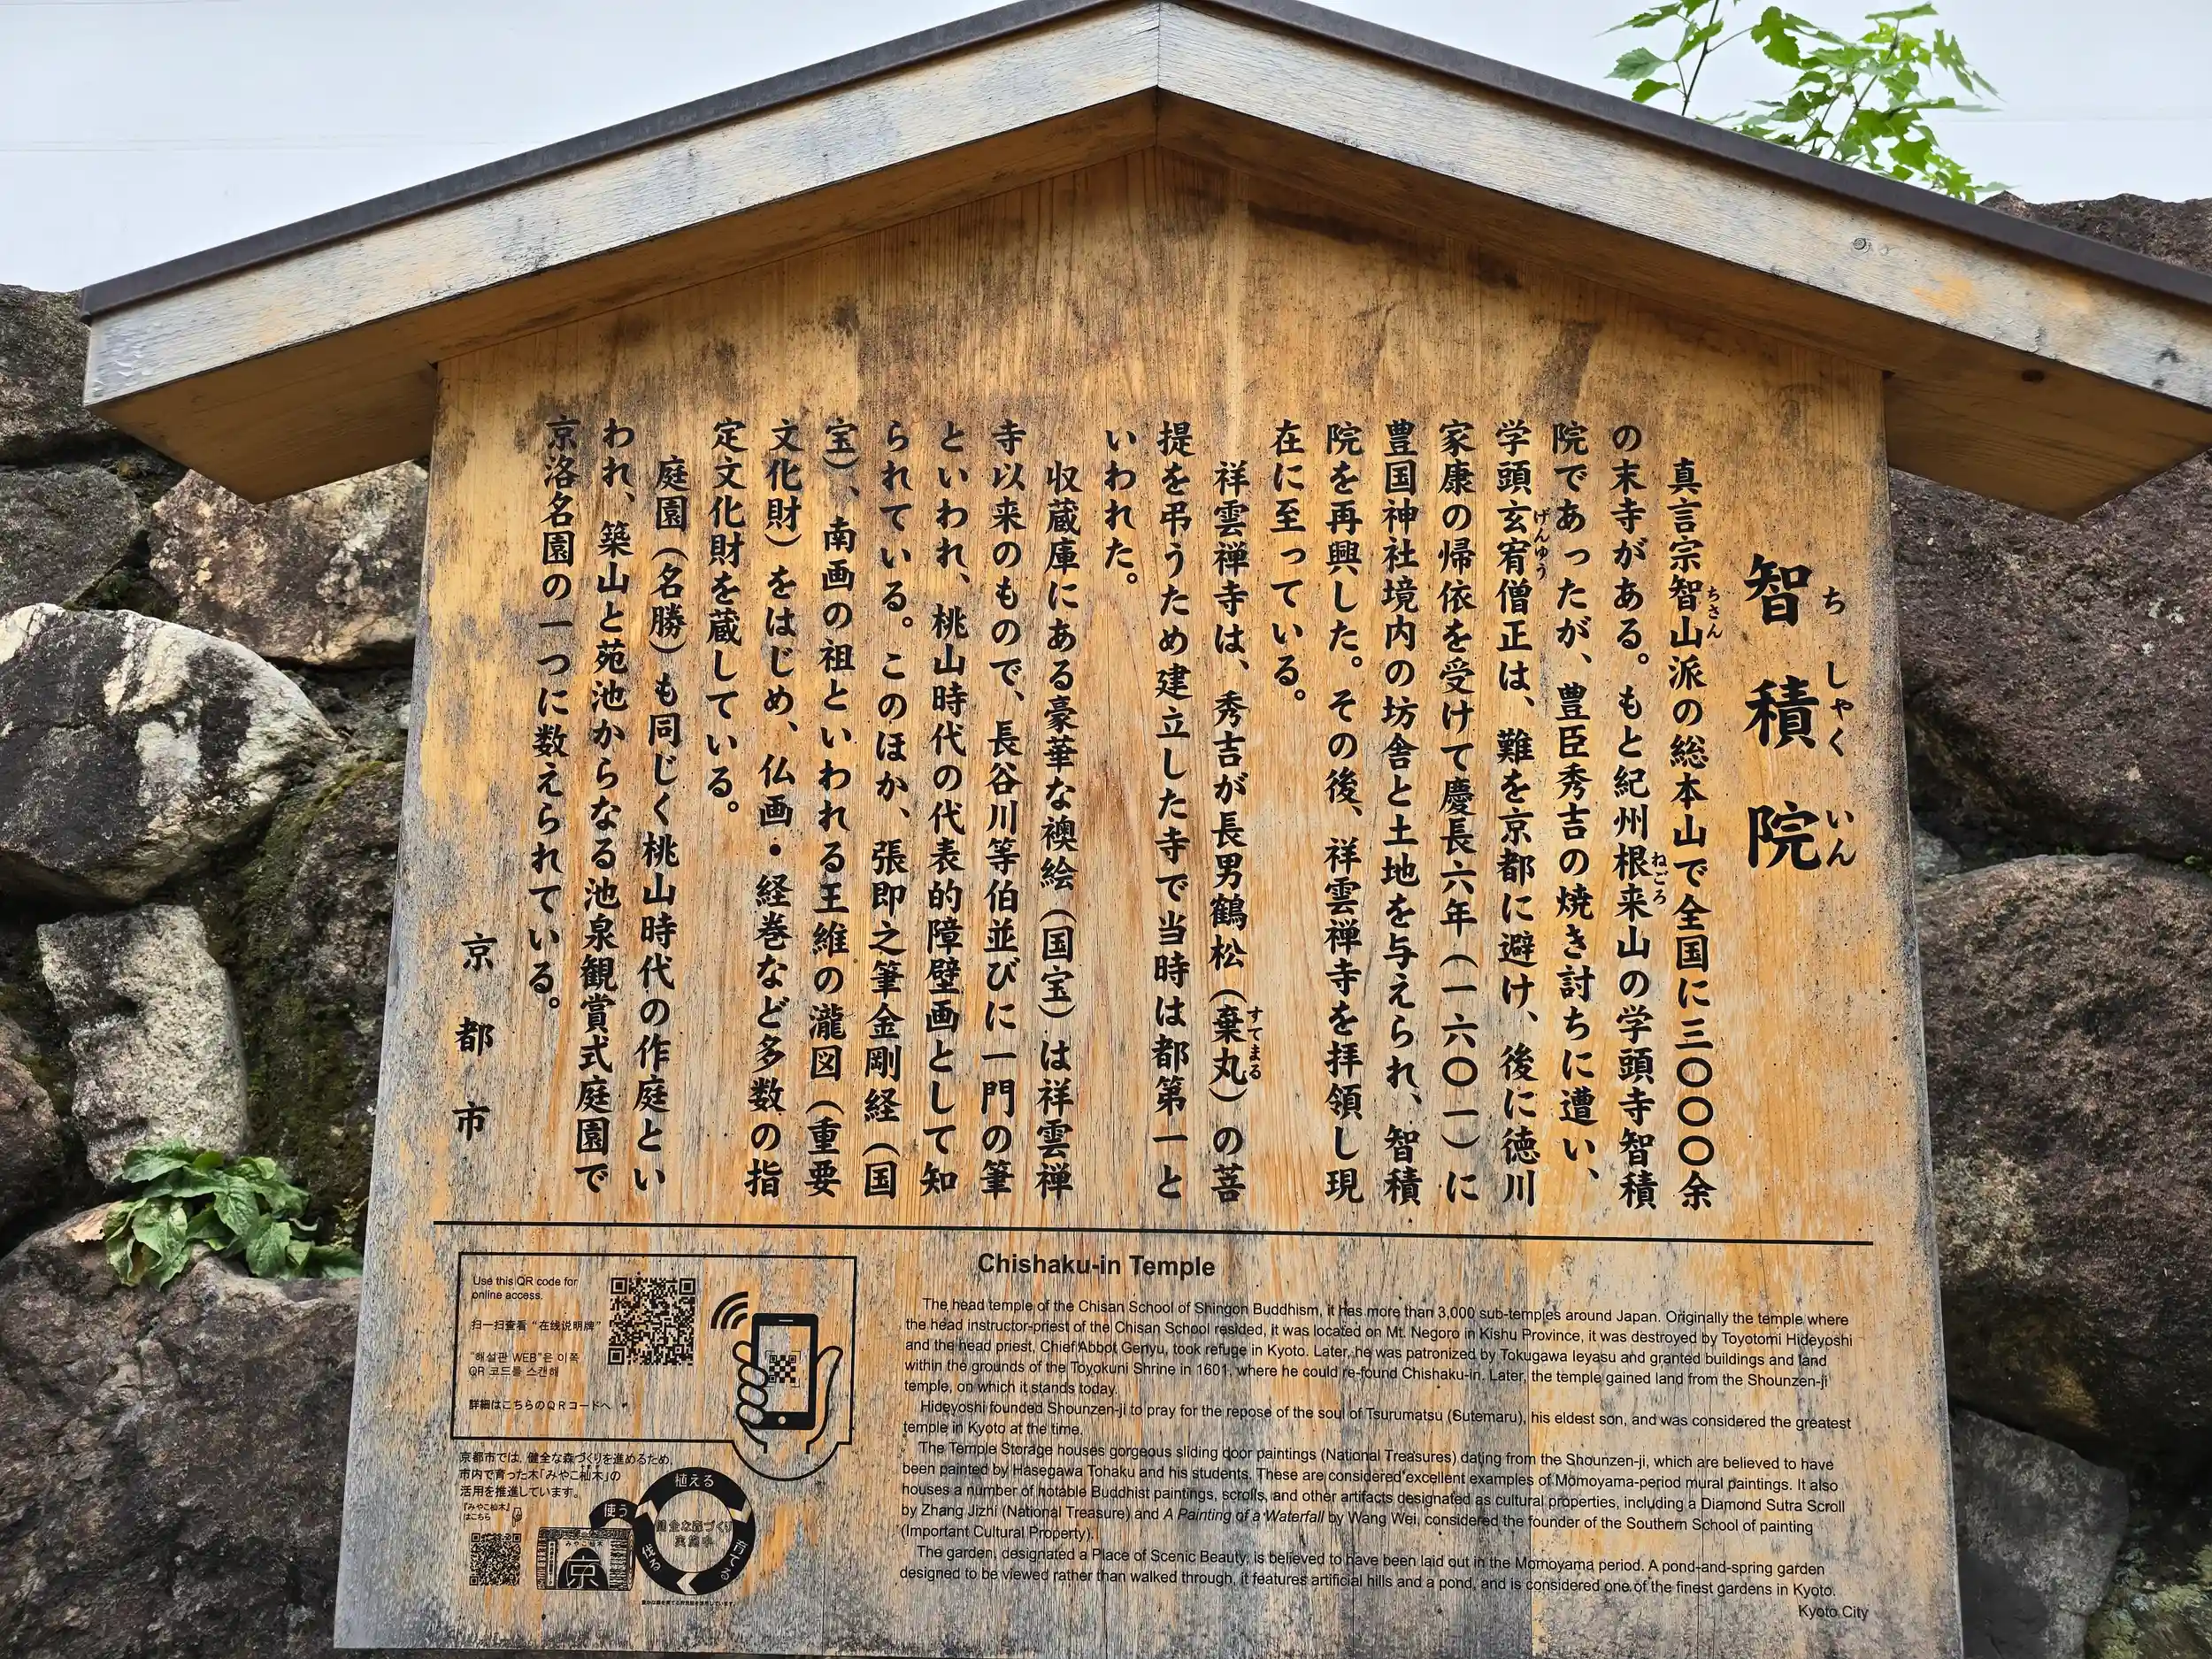 智積院
ちしゃくいん
真言宗智山派の総本山で全国に三〇〇〇余
ちさん
の末寺がある。もと紀州根来山の学頭寺智積
ねごろ
院であったが、豊臣秀吉の焼き討ちに遭い、
学頭玄宥僧正は、難を京都に避け、後に徳川
げんゆう
家康の帰依を受けて慶長六年（一六〇一）に
豊国神社境内の坊舎と土地を与えられ、智積
院を再興した。その後、祥雲禅寺を拝領し現
在に至っている。
祥雲禅寺は、秀吉が長男鶴松（棄丸）の菩
すてまる
提を弔うため建立した寺で当時は都第一と
いわれた。
収蔵庫にある豪華な襖絵（国宝）は祥雲禅
寺以来のもので、長谷川等伯並びに一門の筆
といわれ、桃山時代の代表的障壁画として知
られている。このほか、張即之筆金剛経（国
宝）、南画の祖といわれる王維の瀧図（重要
文化財）をはじめ、仏画・経巻など多数の指
定文化財を蔵している。
庭園（名勝）も同じく桃山時代の作庭とい
われ、築山と苑池からなる池泉観賞式庭園で
京洛名園の一つに数えられている。
京都市
Use this QR code for
online access.
扫一扫查看“在线说明牌”
"해설판 WEB"은 이쪽
QR 코드를 스캔해
詳細はこちらのQRコードへ
京都市では、健全な森づくりを進めるため、
市内で育った木「みやこ杣木」の
活用を推進しています。
『みやこ杣木』
はこちら
使う
植える
育てる
伐る
健全な森づくり
実施中
みやこ杣木
京
Chishaku-in Temple
The head temple of the Chisan School of Shingon Buddhism, it has more than 3,000 sub-temples around Japan. Originally the temple where
the head instructor-priest of the Chisan School resided, it was located on Mt. Negoro in Kishu Province, it was destroyed by Toyotomi Hideyoshi
and the head priest, Chief Abbot Genyu, took refuge in Kyoto. Later, he was patronized by Tokugawa Ieyasu and granted buildings and land
within the grounds of the Toyokuni Shrine in 1601, where he could re-found Chishaku-in. Later, the temple gained land from the Shounzen-ji
temple, on which it stands today.
Hideyoshi founded Shounzen-ji to pray for the repose of the soul of Tsurumatsu (Sutemaru), his eldest son, and was considered the greatest
temple in Kyoto at the time.
The Temple Storage houses gorgeous sliding door paintings (National Treasures) dating from the Shounzen-ji, which are believed to have
been painted by Hasegawa Tohaku and his students. These are considered excellent examples of Momoyama-period mural paintings. It also
houses a number of notable Buddhist paintings, scrolls, and other artifacts designated as cultural properties, including a Diamond Sutra Scroll
by Zhang Jizhi (National Treasure) and A Painting of a Waterfall by Wang Wei, considered the founder of the Southern School of painting
(Important Cultural Property).
The garden, designated a Place of Scenic Beauty, is believed to have been laid out in the Momoyama period. A pond-and-spring garden
designed to be viewed rather than walked through, it features artificial hills and a pond, and is considered one of the finest gardens in Kyoto.
Kyoto City